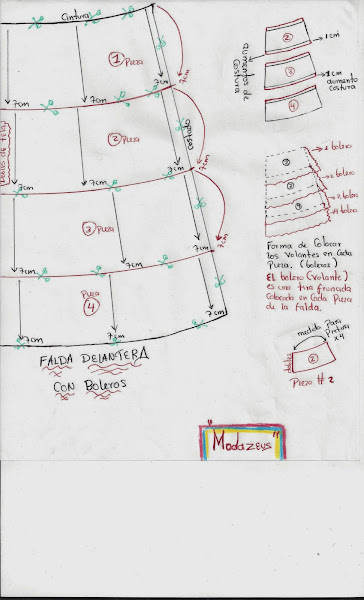 Cintura
① Pieza
7cm
7cm
7cm
7cm
costado
② Pieza
7cm
7cm
7cm
7cm
③ Pieza
7cm
7cm
7cm
Pieza
④
7cm
7cm
7cm
FALDA DELANTERA
CON Boleros
②
1cm
aumentos de
Costura
③
1cm
aumento
costura
④
1 bolero
2 bolero
3 bolero
Forma de Colocar
los Volantes en Cada
Pieza. (boleros)
EL bolero (Volante)
es una tira fruncida
Colocada en Cada Pieza
de la falda.
medida Para
x4
doblez
②
Pieza # 2
"Modazeus"